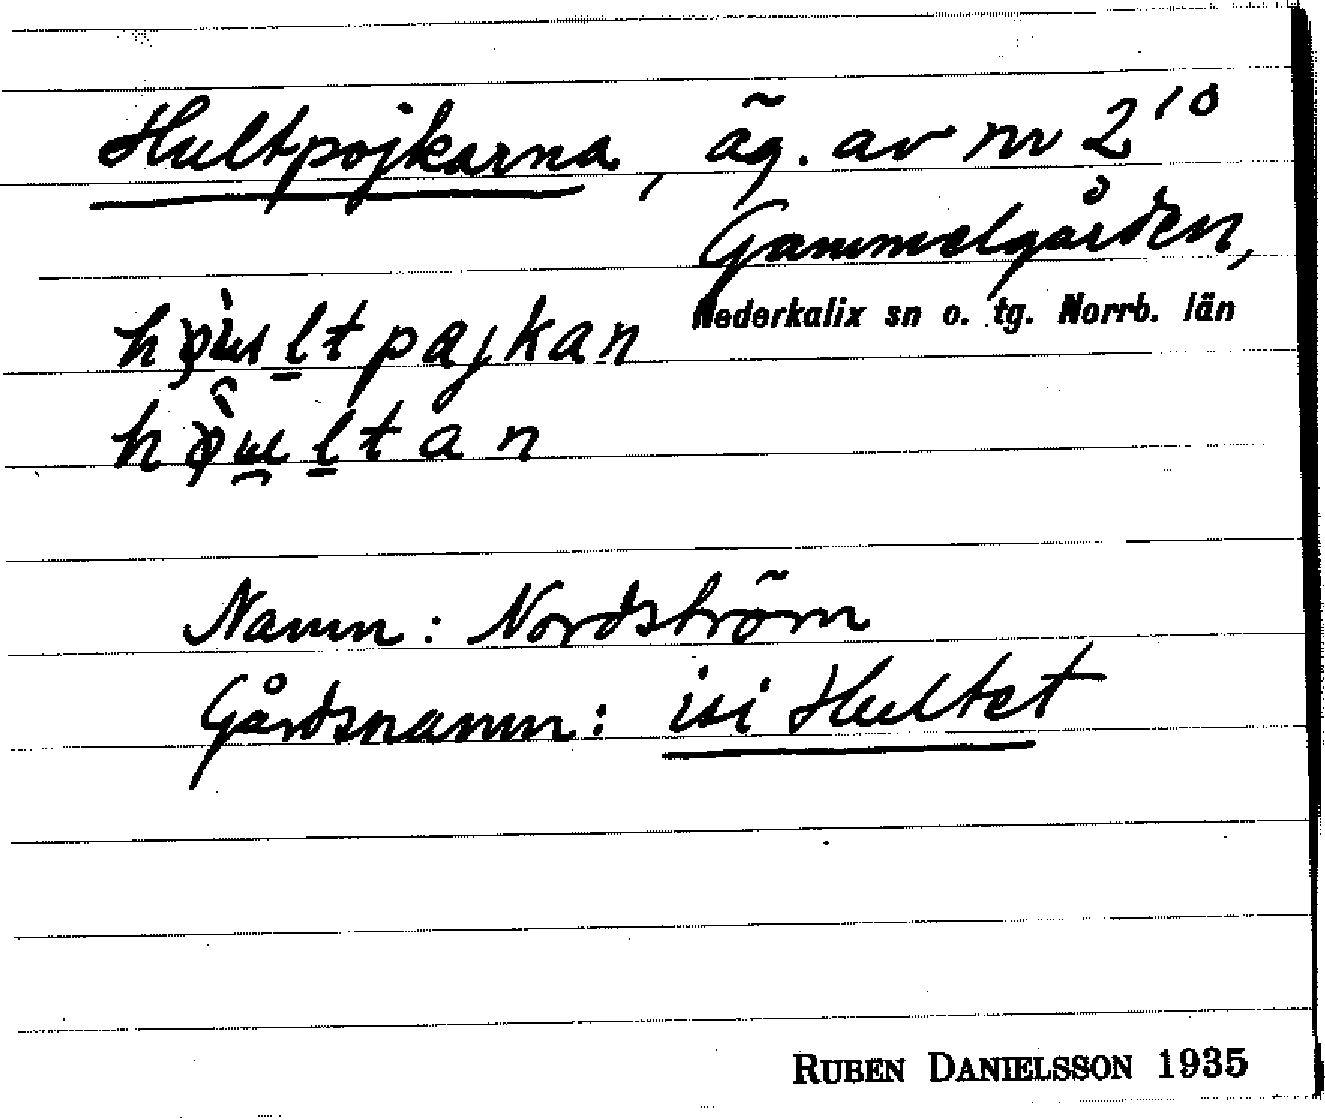 Hultpojkarna, äg. av nr 2¹⁰
Gammelgården,
Nederkalix sn o. tg. Norrb. län
Namn: Nordström
Gårdsnamn: ini Hultet
RUBEN DANIELSSON 1935